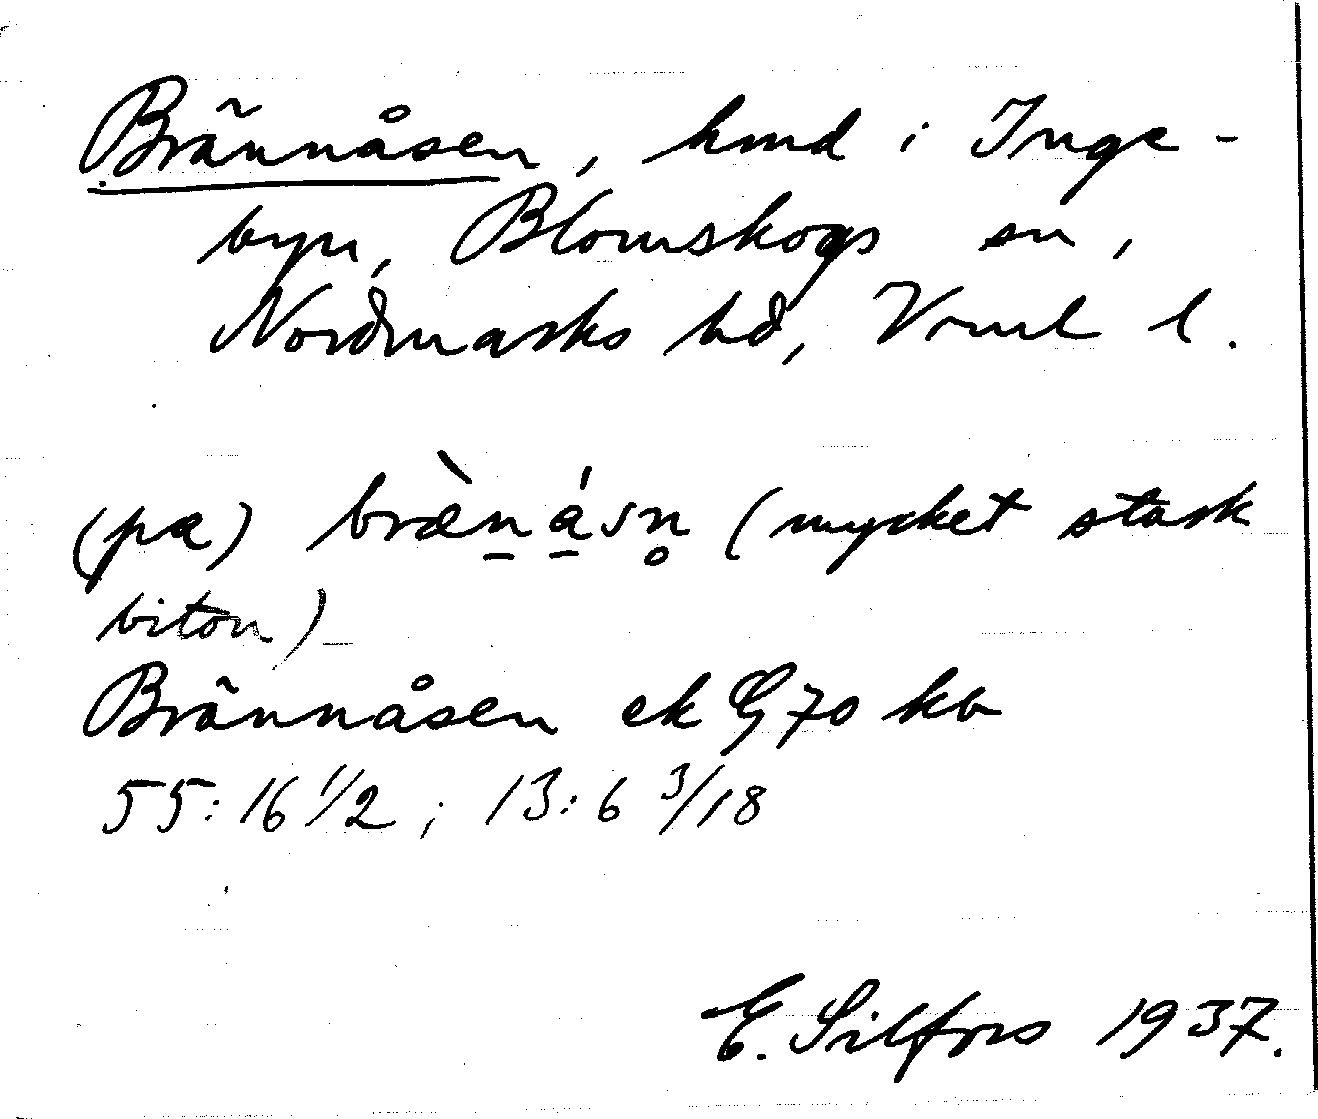 Brännåsen, hmd i Inge-
byn, Blomskogs sn,
Nordmarks hd, Vrml l.
(pæ) bræ̀n̲á̲sn̥ (mycket stark
biton)
Brännåsen ek G 70 kb
55:16 1/2 ; 13:6 3/18
E. Silfors 1937.